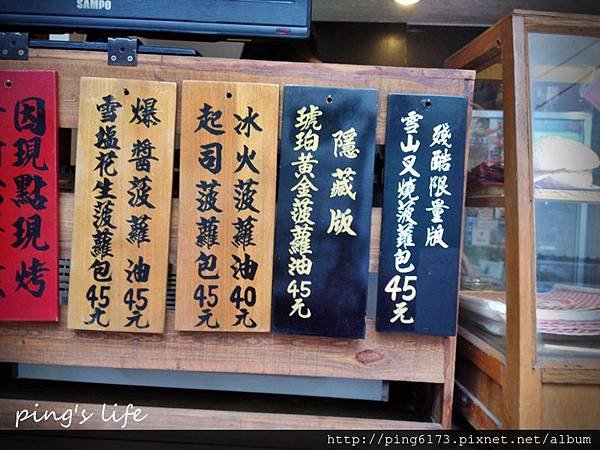 SAMPO
殘酷限量版
雪山叉燒菠蘿包45元
隱藏版
琥珀黃金菠蘿油45元
冰火菠蘿油40元
起司菠蘿包45元
爆醬菠蘿油45元
雪塩花生菠蘿包45元
因現點現烤
ping's life
http://ping6173.pixnet.net/album